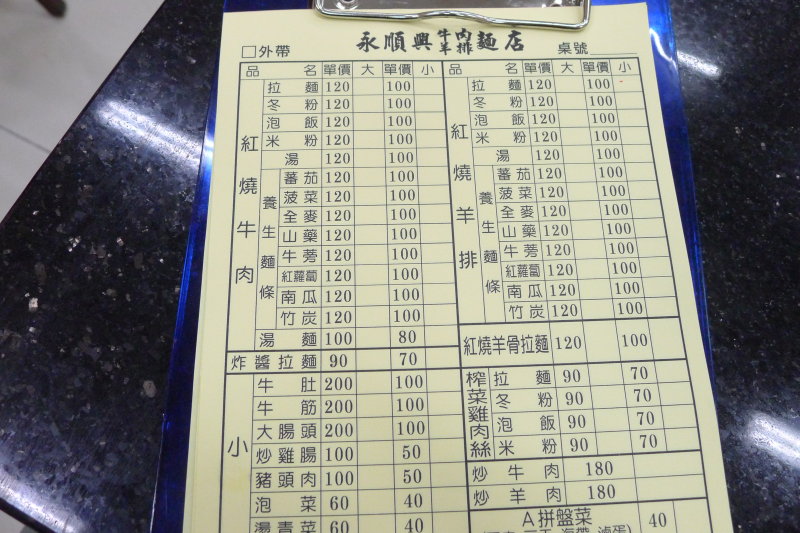 永順興牛肉羊排麵店
□外帶 桌號
品名 單價 大 單價 小
紅燒牛肉
拉麵 120 100
冬粉 120 100
泡飯 120 100
米粉 120 100
湯 120 100
養生麵條
蕃茄 120 100
菠菜 120 100
全麥 120 100
山藥 120 100
牛蒡 120 100
紅蘿蔔 120 100
南瓜 120 100
竹炭 120 100
湯麵 100 80
炸醬拉麵 90 70
小
牛肚 200 100
牛筋 200 100
大腸頭 200 100
炒雞腸 100 50
豬頭肉 100 50
泡菜 60 40
湯青菜 60 40
品名 單價 大 單價 小
紅燒羊排
拉麵 120 100
冬粉 120 100
泡飯 120 100
米粉 120 100
湯 120 100
養生麵條
蕃茄 120 100
菠菜 120 100
全麥 120 100
山藥 120 100
牛蒡 120 100
紅蘿蔔 120 100
南瓜 120 100
竹炭 120 100
紅燒羊骨拉麵 120 100
榨菜雞肉絲
拉麵 90 70
冬粉 90 70
泡飯 90 70
米粉 90 70
炒牛肉 180
炒羊肉 180
A拼盤菜 40